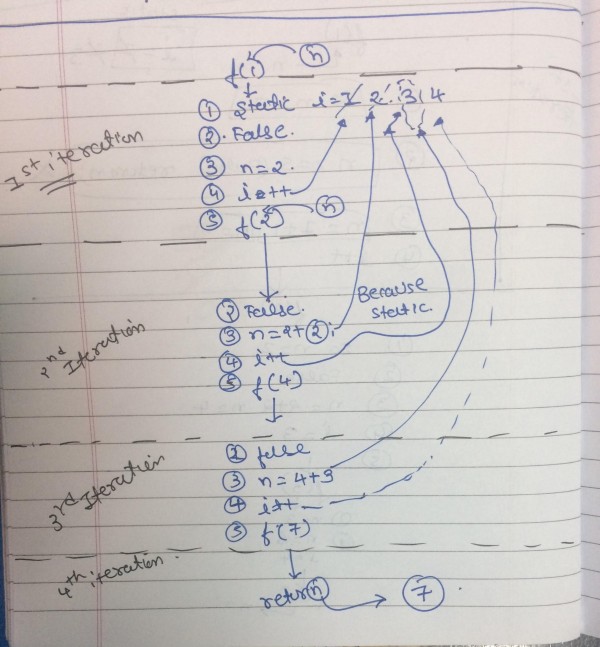 f(1) n
① Static i = 1 2 3 4
② False.
1st iteration
③ n = 2.
④ i++
⑤ f(2) n
② False.
Because static.
③ n = 2 + ② ;
2nd Iteration
④ i++
⑤ f(4)
② false
③ n = 4 + 3
3rd Iteration
④ i++
⑤ f(7)
4th iteration.
return n → ⑦ .